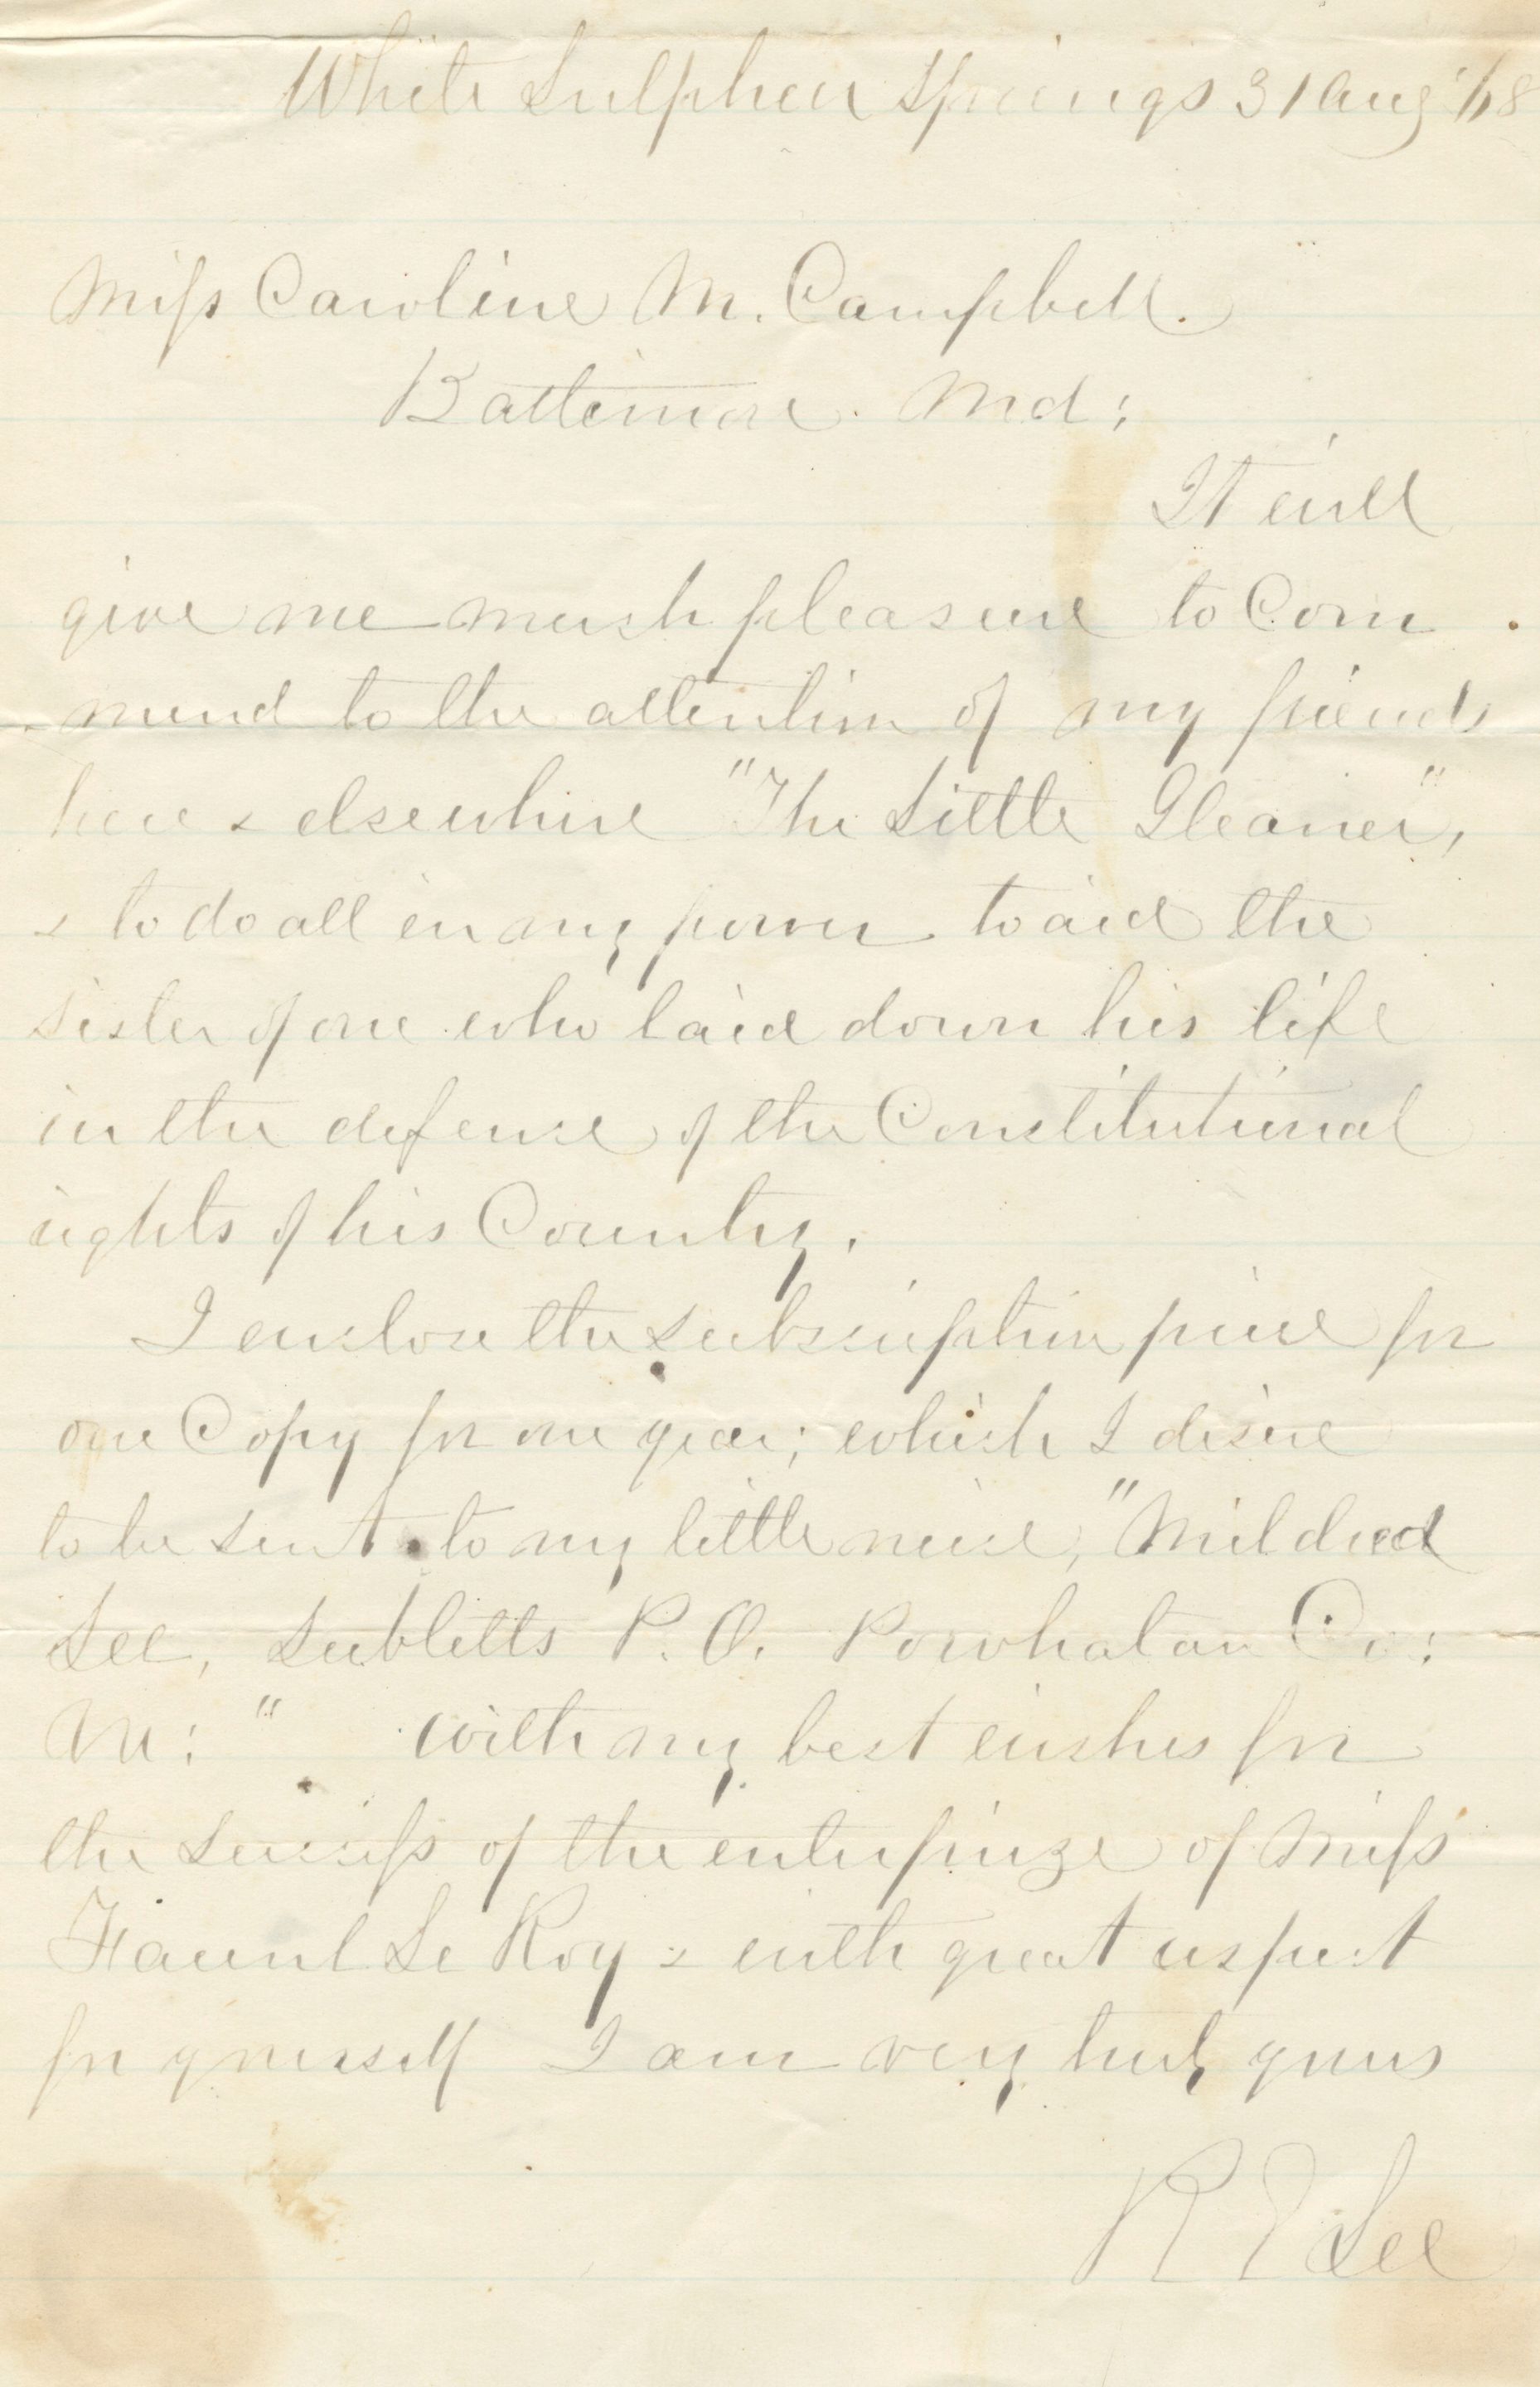 White Sulphur Springs 31 Aug '68
Miss Caroline M. Campbell.
Baltimore. Md:
It will
give me much pleasure to Com
-mend to the attention of my friends
here & elsewhere "The Little Gleaner",
& to do all in my power to aid the
sister of one who laid down his life
in the defense of the Constitutional
rights of his Country.
I enclose the subscription price for
one Copy for one year; which I desire
to be sent to my little niece, "Mildred
Lee, Subletts P. O. Powhatan Co:
Va: " With my best wishes for
the success of the enterprize of Miss
Fauntleroy & with great respect
for yourself I am very truly yours
R E Lee